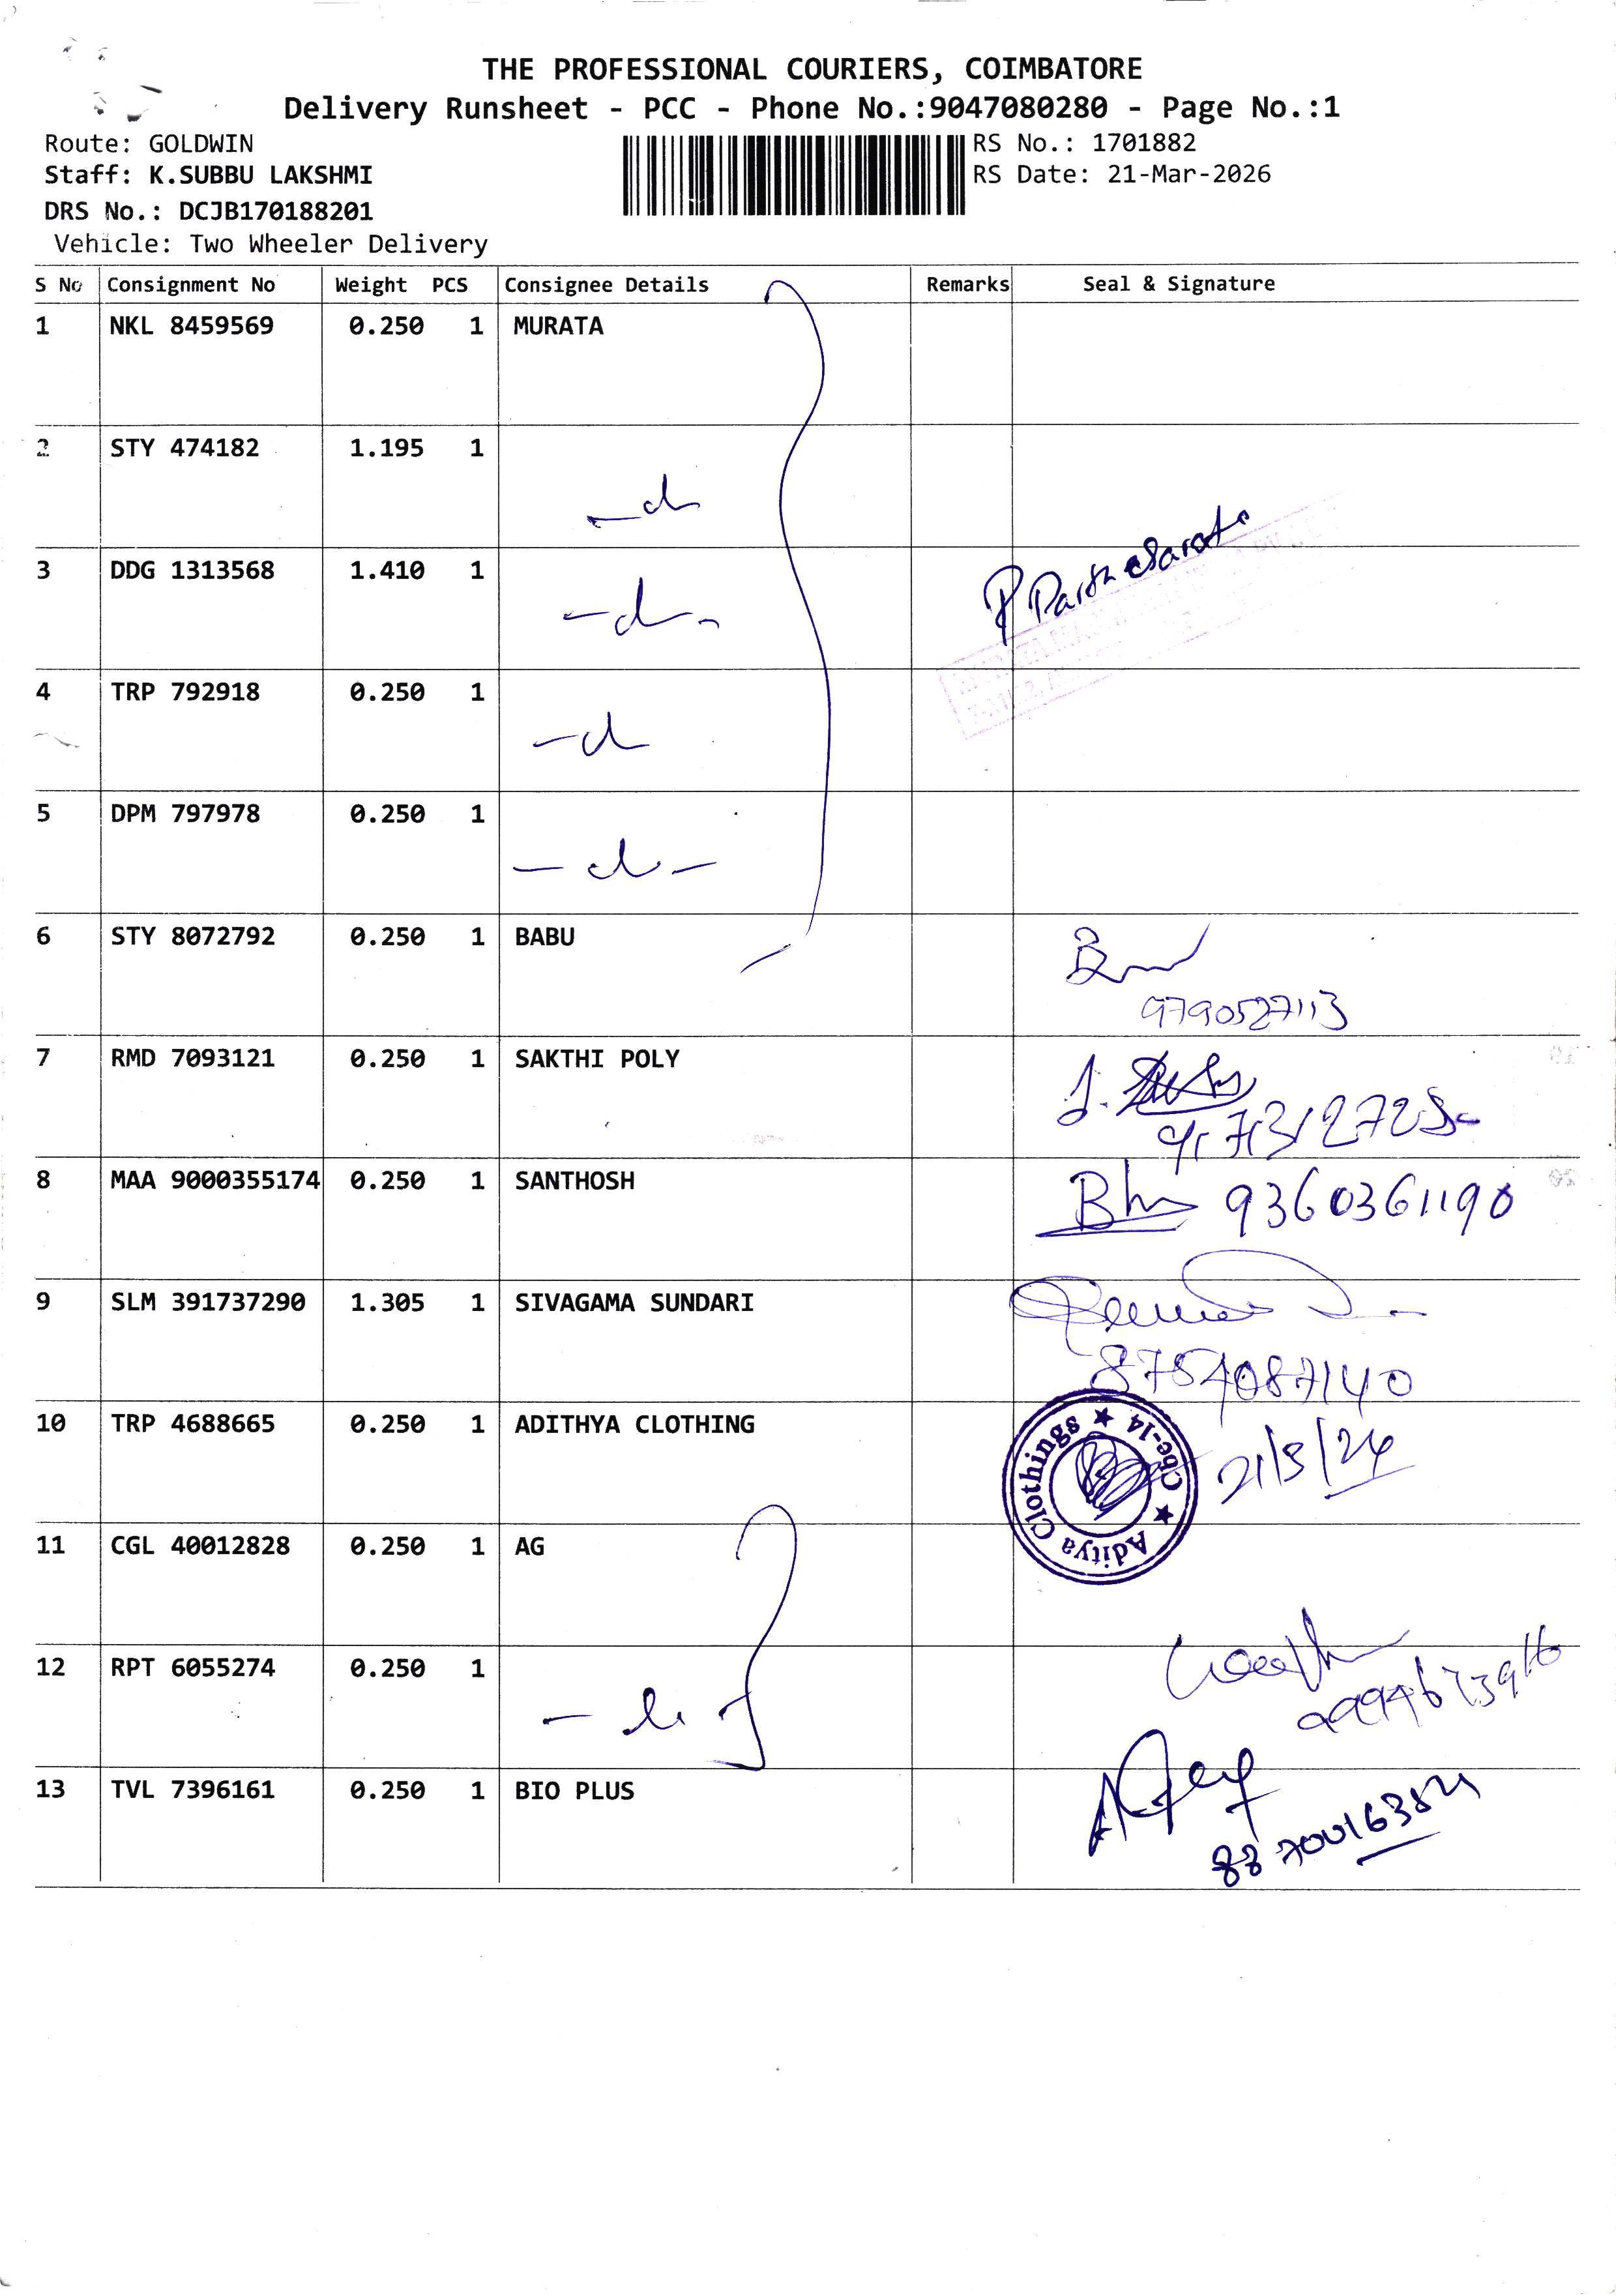 THE PROFESSIONAL COURIERS, COIMBATORE
Delivery Runsheet - PCC - Phone No.:9047080280 - Page No.:1
Route: GOLDWIN
RS No.: 1701882
Staff: K.SUBBU LAKSHMI
RS Date: 21-Mar-2026
DRS No.: DCJB170188201
Vehicle: Two Wheeler Delivery
S No Consignment No Weight PCS Consignee Details Remarks Seal & Signature
1 NKL 8459569 0.250 1 MURATA
2 STY 474182 1.195 1
-d-
3 DDG 1313568 1.410 1
-d-
4 TRP 792918 0.250 1
-d
5 DPM 797978 0.250 1
-d-
6 STY 8072792 0.250 1 BABU
9790527113
7 RMD 7093121 0.250 1 SAKTHI POLY
8 MAA 9000355174 0.250 1 SANTHOSH
9360361190
9 SLM 391737290 1.305 1 SIVAGAMA SUNDARI
8754087140
10 TRP 4688665 0.250 1 ADITHYA CLOTHING
Aditya Clothings ★ Cbe-14 ★
11 CGL 40012828 0.250 1 AG
12 RPT 6055274 0.250 1
13 TVL 7396161 0.250 1 BIO PLUS